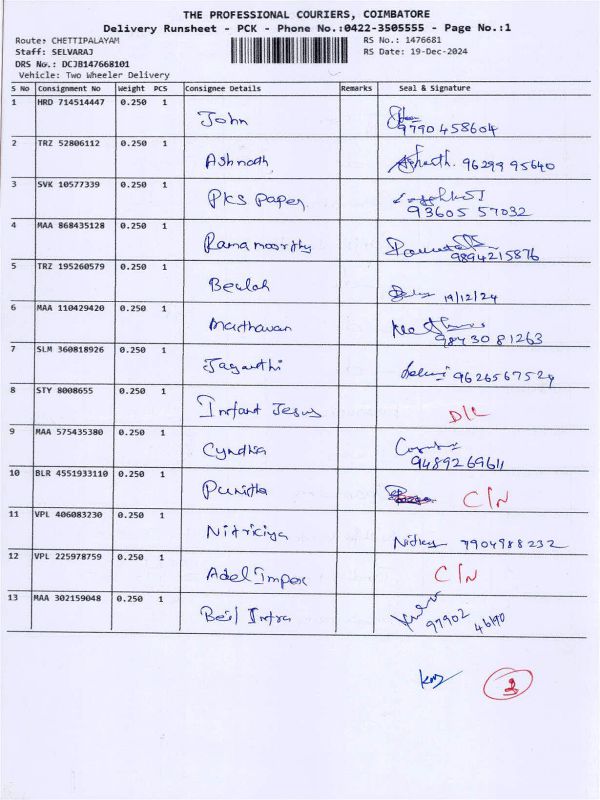 THE PROFESSIONAL COURIERS, COIMBATORE
Delivery Runsheet - PCK - Phone No.:0422-3505555 - Page No.:1
Route: CHETTIPALAYAM RS No.: 1476681
Staff: SELVARAJ RS Date: 19-Dec-2024
DRS No.: DCJB147668101
Vehicle: Two Wheeler Delivery
S No Consignment No Weight PCS Consignee Details Remarks Seal & Signature
1 HRD 714514447 0.250 1 John
9790458604
2 TRZ 52806112 0.250 1 Ashnath 96299 95640
3 SVK 10577339 0.250 1 PKS Paper
93605 57032
4 MAA 868435128 0.250 1 Ramamoorthy
9894215876
5 TRZ 195260579 0.250 1 Beulah 19/12/24
6 MAA 110429420 0.250 1 Madhavan
98430 81263
7 SLM 360818926 0.250 1 Jayanthi 9626567524
8 STY 8008655 0.250 1 Infant Jesus D/L
9 MAA 575435380 0.250 1 Cynthia
9489269611
10 BLR 4551933110 0.250 1 Punitha C/N
11 VPL 406083230 0.250 1 Nitriciya 7904988232
12 VPL 225978759 0.250 1 Adel Impex C/N
13 MAA 302159048 0.250 1 Infra
97902
46190